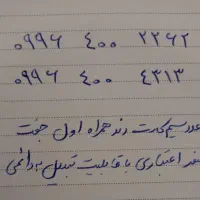 ۰۹۹۶ ۴۰۰ ۲۲۶۲
۰۹۹۶ ۴۰۰ ۴۳۱۳
عدد سیم‌کارت رند همراه اول جفت
صفر اعتباری با قابلیت تبدیل به دائمی